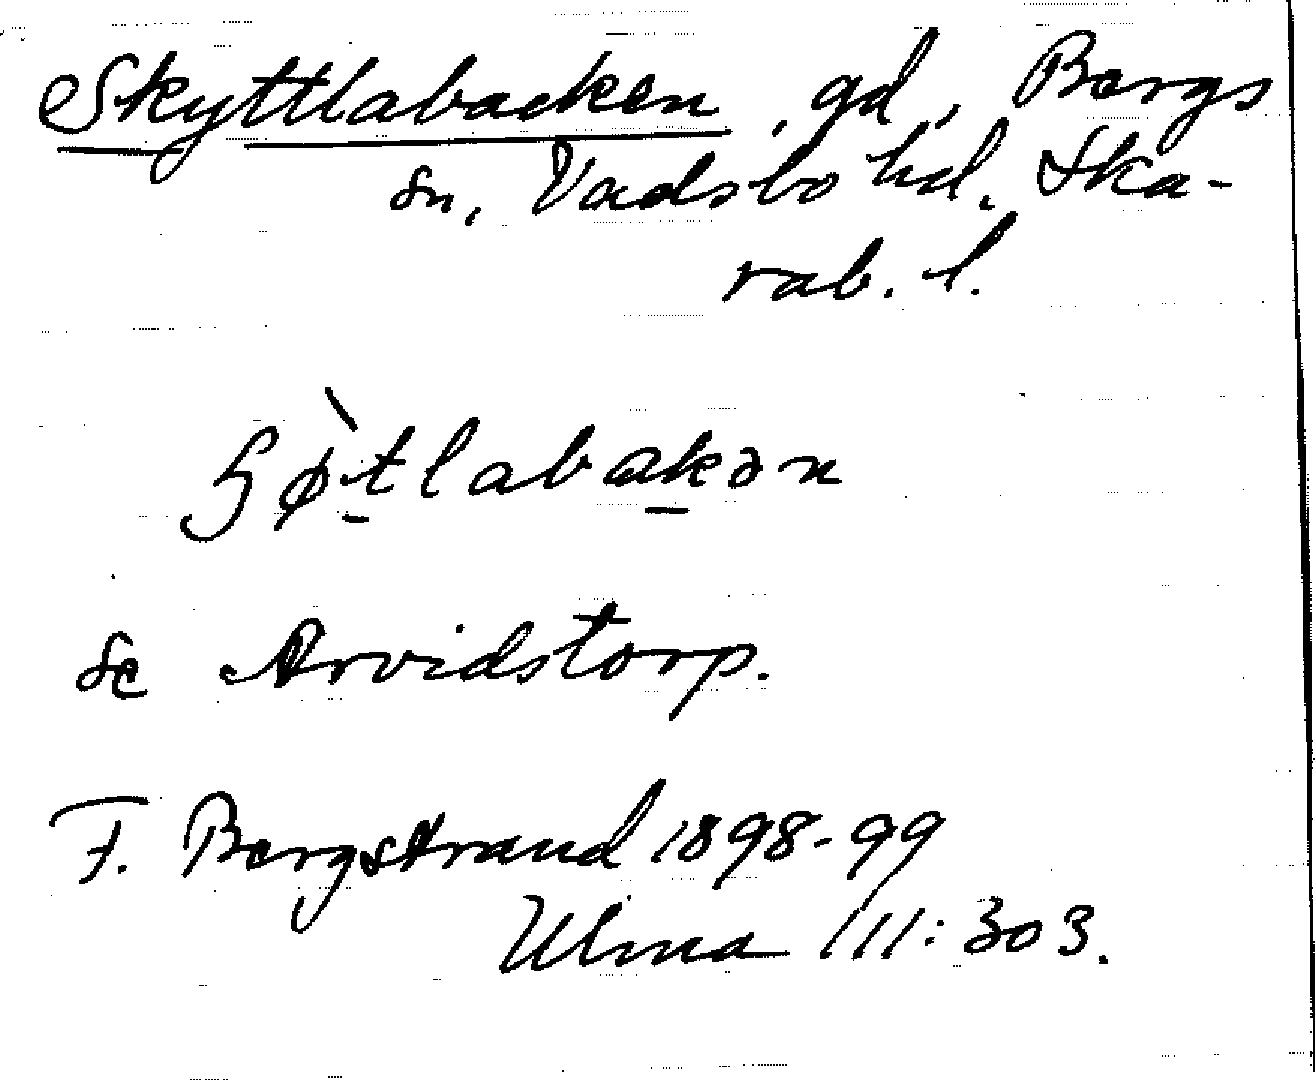 Skyttlabacken, gd, Bergs
sn, Vadsbo hd. Ska-
rab. l.
ʂø̀tlabakən
se Arvidstorp.
F. Bergstrand 1898-99
Ulma 111:303.